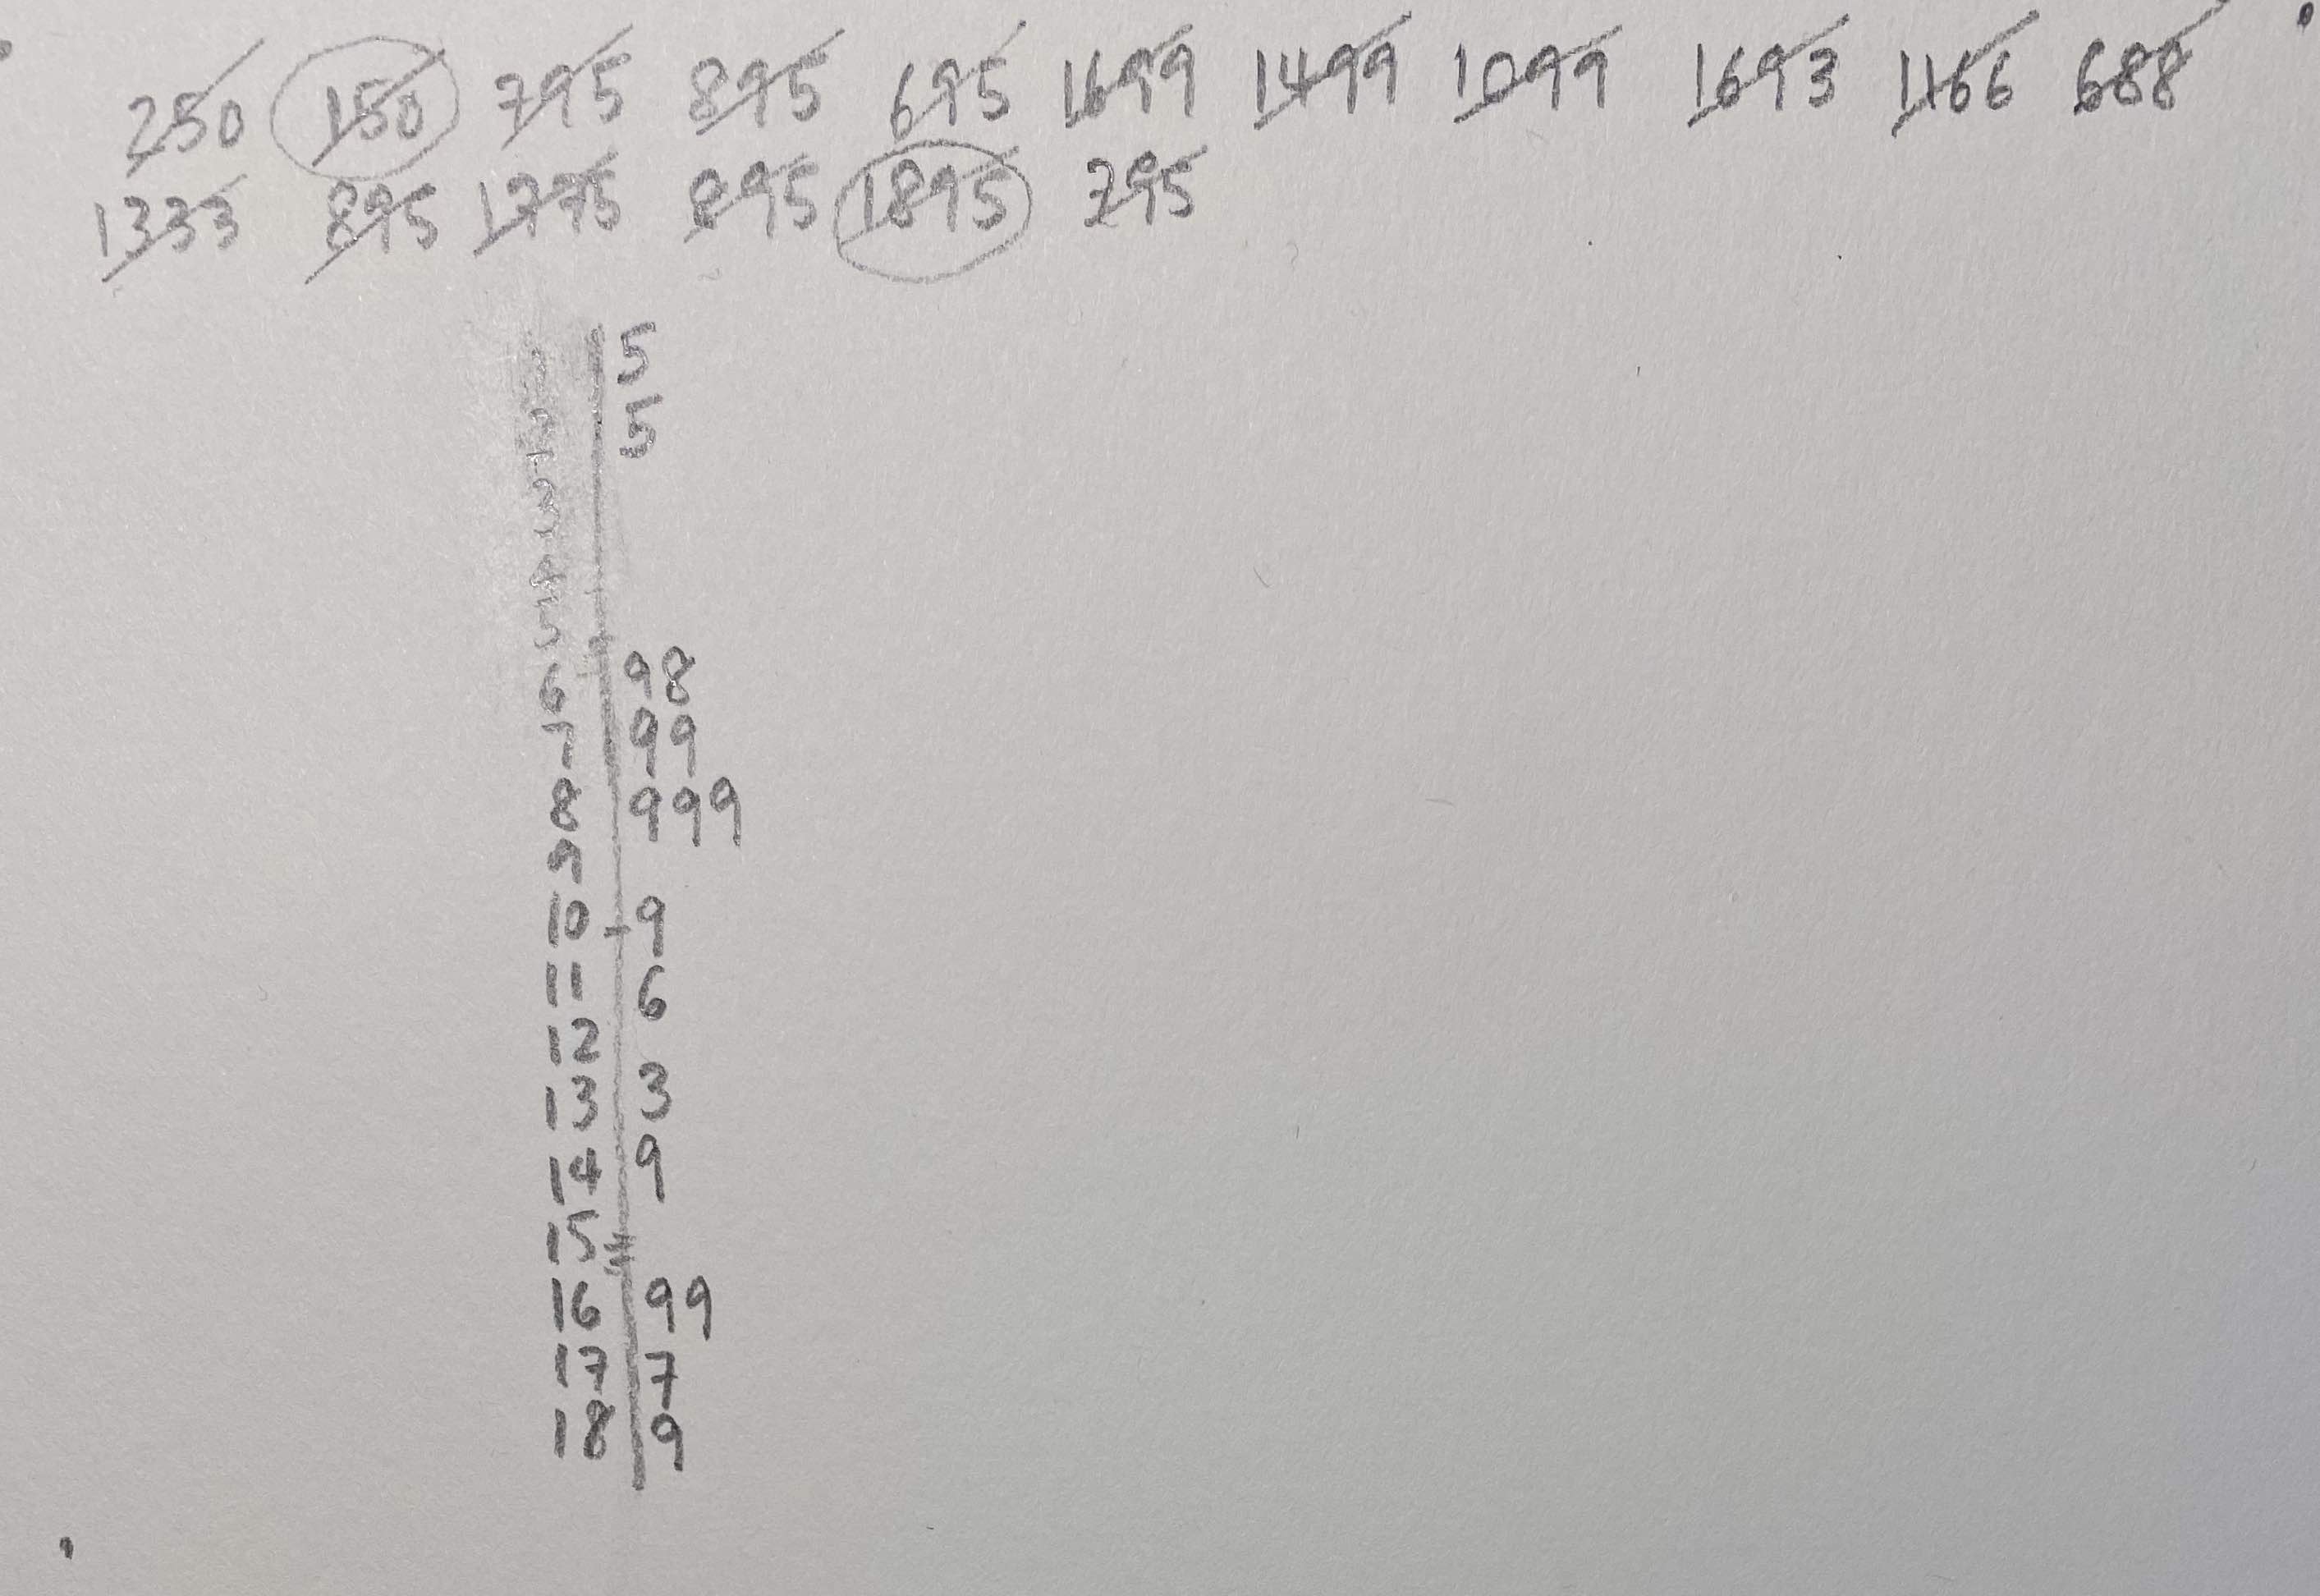 250 150 795 895 695 1699 1499 1099 1693 1166 688
1333 895 1775 895 1895 795
1 | 5
2 | 5
3 |
4 |
5 |
6 | 98
7 | 99
8 | 999
9 |
10 | 9
11 | 6
12 |
13 | 3
14 | 9
15 |
16 | 99
17 | 7
18 | 9